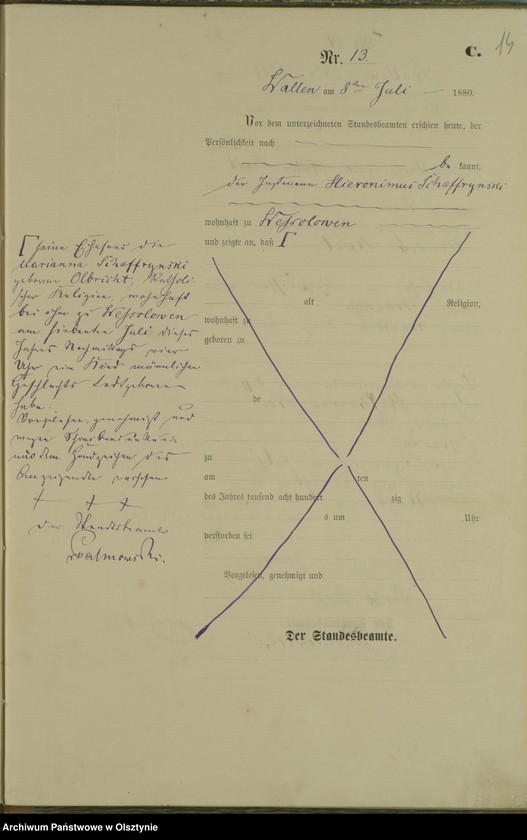 C. 14
Nr. 13.
Wallen am 8ten Juli 1880.
Vor dem unterzeichneten Standesbeamten erschien heute, der
Persönlichkeit nach
be kannt,
der Instmann Hieronimus Schaffrynski
wohnhaft zu Wessolowen
und zeigte an, daß
seine Ehefrau die
Marianna Schaffrynski
geborene Olbricht, Katholi
scher Religion, wohnhaft
bei ihm zu Wessolowen
am siebenten Juli dieses
Jahres Nachmittags vier
Uhr ein Kind männlichen
Geschlechts todtgeboren
habe.
Vorgelesen, genehmigt und
wegen Schreibensunkunde
mit dem Handzeichen des
Anzeigenden versehen
+ + +
Der Standesbeamte
alt Religion,
wohnhaft zu
geboren zu
de
zu
am ten
des Jahres tausend acht hundert zig
s um Uhr
verstorben sei
Vorgelesen, genehmigt und
Der Standesbeamte.
Archiwum Państwowe w Olsztynie